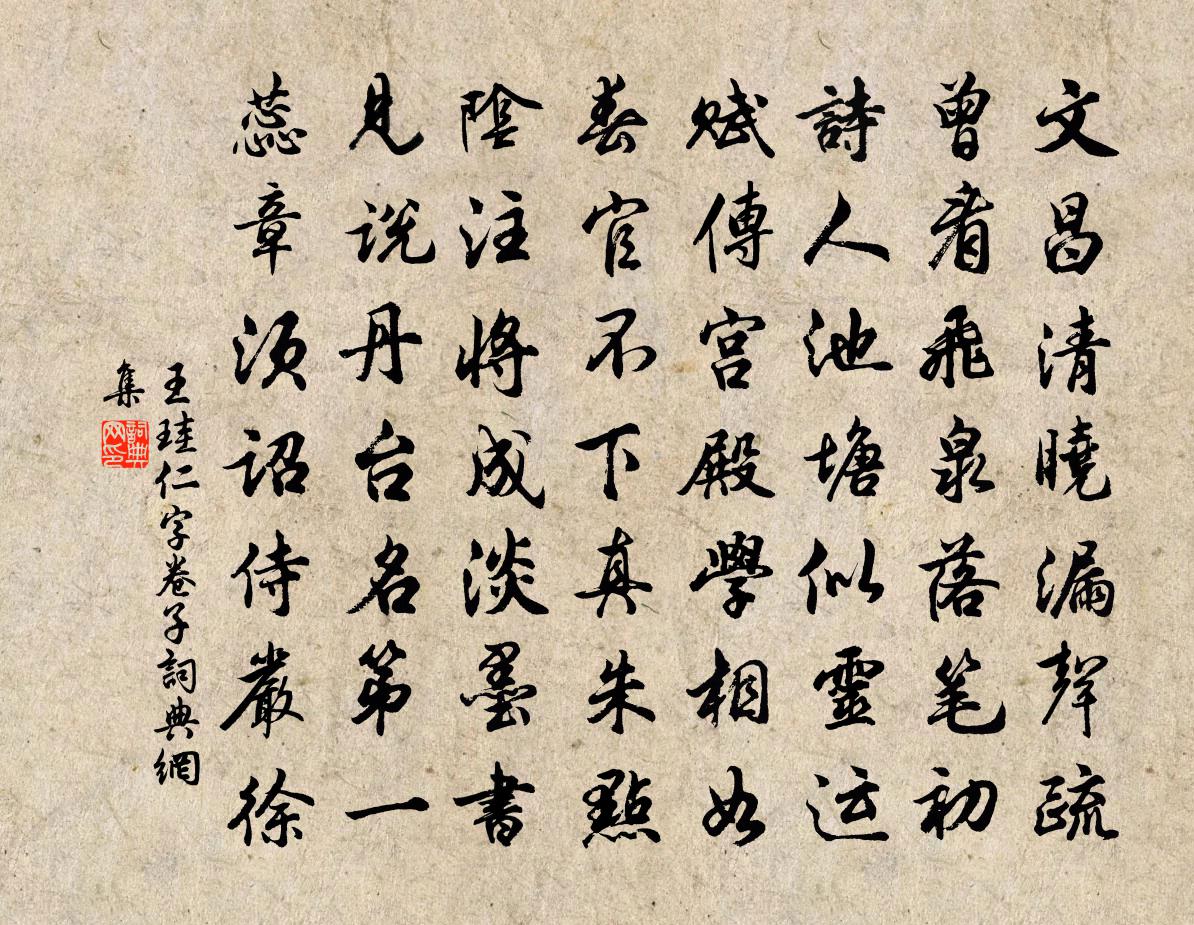 文昌清曉漏聲疏
曾看飛泉落笔初
詩人池塘似靈运
賦傳宮殿學相如
春官不下真朱點
陰注將成淡墨書
見说丹台名第一
蕊章须诏侍嚴徐
王珪仁字卷子詞典網
集
詞典网印